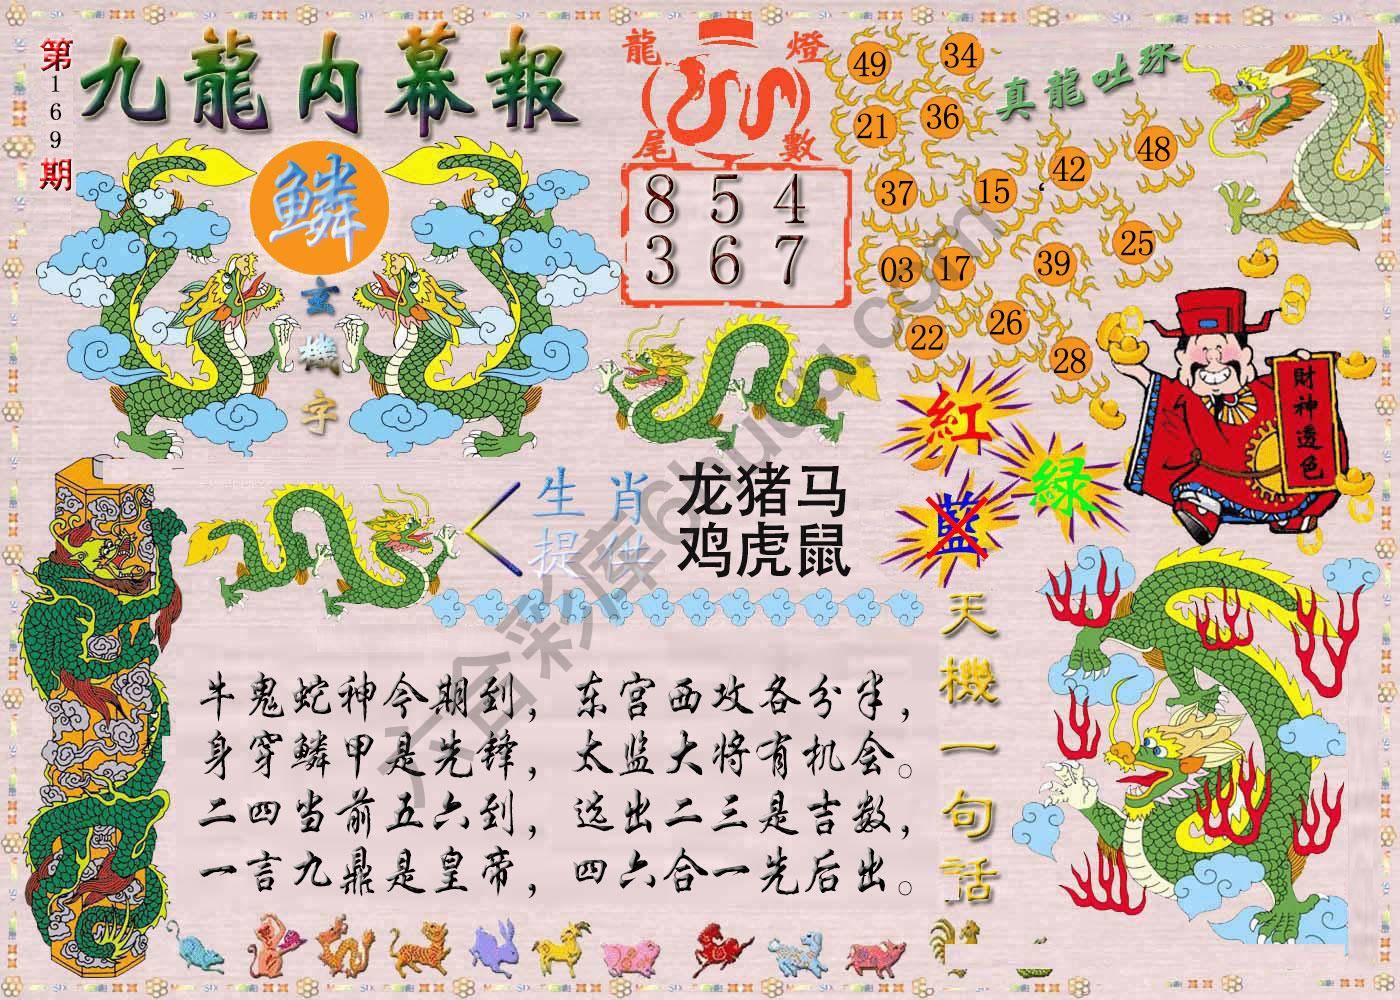 第169期
九龍内幕報
鱗
玄機字
龍燈
尾數
8 5 4
3 6 7
真龍吐珠
49 34
21 36
37 15 42 48
03 17 39 25
22 26 28
財神透色
紅
绿
藍
生肖
提供
龙猪马
鸡虎鼠
天機一句話
牛鬼蛇神今期到，东宫西攻各分半，
身穿鳞甲是先锋，太监大将有机会。
二四当前五六到，选出二三是吉数，
一言九鼎是皇帝，四六合一先后出。
六合彩库6huu.com